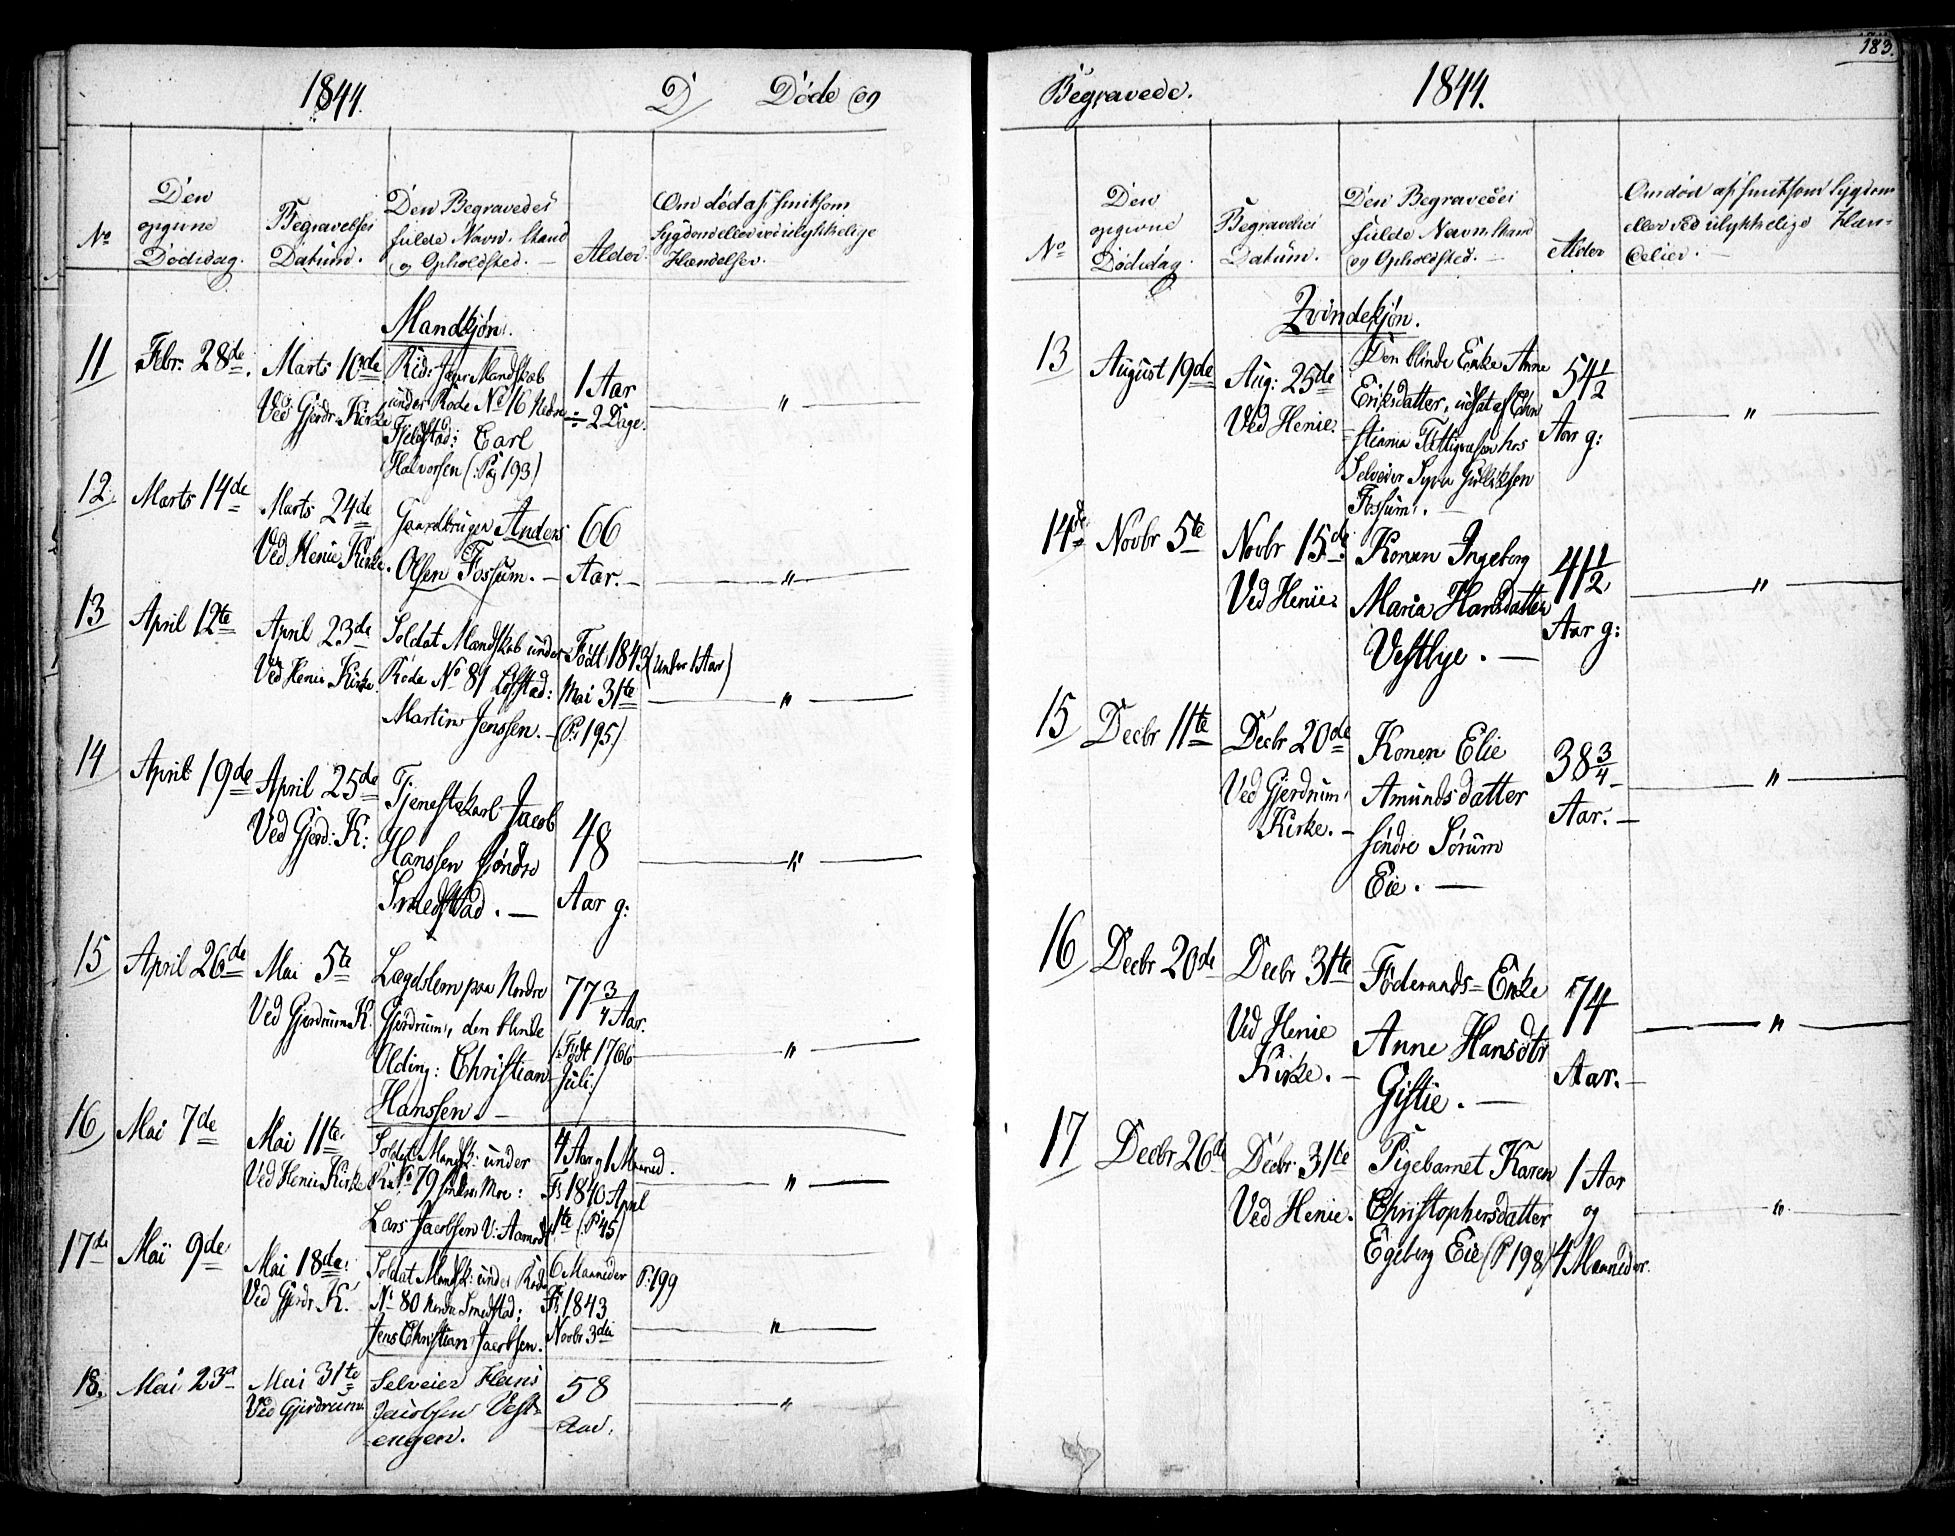 1844.
D
Døde og
No
Den
opgivne
Dødsdag.
Begravelses
Datum.
Den Begravedes
fulde Navn, Stand
og Opholdsted. —
Alder.
Om død af smitsom
Sygdom eller ved ulykkelige
Hændelser.
Mandkjøn.
11
Febr: 28de
Marts 10de
Ved Gjerdr: Kirke
Mandskab
under Rode No 16 Nedre
Carl
Halvorsen (: Pag 193)
1 Aar
÷ 2 Dage.
"
12
Marts 14de
Marts 24de
Ved Henie Kirke.
Gaardbruger Anders
Olsen Fossum. —
66
Aar. —
"
13
April 12te
April 23de
Ved Henie Kirke.
Soldat Mandskab under
Rode No 81 Løfstad:
Martin Jenssen. —
Født 1843 (under 1 Aar)
Mai 31te
(P: 195)
"
14
April 19de
April 25de
Ved Gjerd: K:
Tjenestekarl Jacob
Hanssen Søndre
Smedstad. —
48
Aar g:
"
15
April 26de
Mai 5te
Ved Gjerdrum K.
Lægdslem paa Nordre
Gjerdrum, den blinde
Olding: Christian
Hanssen. —
77 3/4 Aar.
(: Født 1766
Juli:)
"
16
Mai 7de
Mai 11te
Ved Henie Kirke
Soldat Mandsk: under
R: No 79 Søndre Moe:
Lars Jacobsen V: Aamodt
4 Aar og 1 Maaned.
F: 1840 April
1te (P 45)
"
17de
Mai 9de
Mai 18de
Ved Gjerdr K.
Soldat Mandsk: under Rode
No 80 Nordre Smedstad:
Jens Christian Jacobsen.
6 Maaneder
F: 1843
Novbr 3die
P: 199
"
18.
Mai 23d
Mai 31te
Ved Gjerdrum
Selveier Hans
Jacobsen Vest-
engen.
58
Aar.
"
183.
Begravede.
1844.
No
Den
opgivne
Dødsdag.
Begravelses
Datum.
Den Begravedes
fulde Navn, Stand
og Opholdsted. —
Alder
Om død af smitsom Sygdom
eller ved ulykkelige Hæn-
delser. —
Qvindekjøn.
13
August 19de
Aug: 25de
Ved Henie.
Den blinde Enke Anne
Eriksdatter, udsat af Chri
stiania Fattigvæsen hos
Selveier Syver Gulliksen
Fossum. —
54 1/2
Aar g:
"
14de
Novbr 5te
Novbr 15de
Ved Henie.
Konen Ingeborg
Maria Hansdatter
Vestbye. —
41 1/2
Aar g:
"
15
Decbr 11te
Decbr 20de
Ved Gjerdrum
Kirke. —
Konen Elie
Amundsdatter
Søndre Sørum
Eie. —
38 3/4
Aar. —
"
16
Decbr 20de
Decbr 31te
Ved Henie
Kirke. —
Føderaads-Enke
Anne Hansdtr
Gistie. —
74
Aar. —
"
17
Decbr 26de
Decbr: 31te
Ved Henie.
Pigebarnet Karen
Christophersdatter
Egeberg Eie (P 198)
1 Aar
og
4 Maaneder.
"